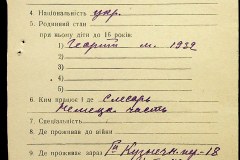 4. Національність укр.
5. Родинний стан
при ньому діти до 16 років
1) Георгий м. 1939
2)
3)
4)
5)
6. Ким працює і де слесарь
часть
7. Спеціальність
8. Де проживав до війни
9. Де проживає зараз Кузнечн. ну-18